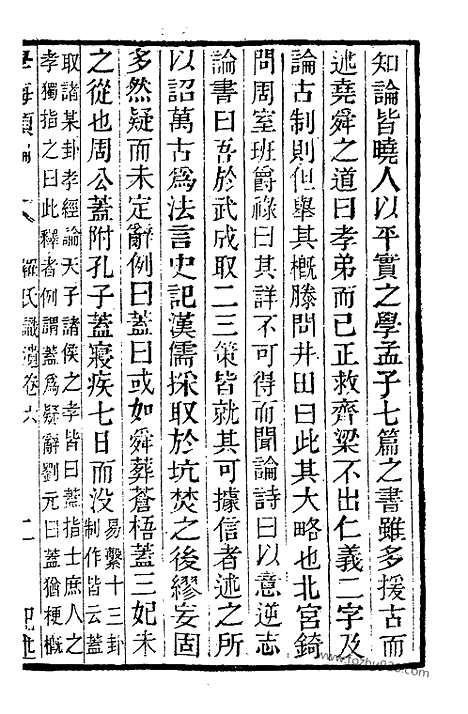 知論皆曉人以平實之學孟子七篇之書雖多援古而
述堯舜之道曰孝弟而已正救齊梁不出仁義二字及
論古制則但舉其槪滕問井田曰此其大略也北宮錡
問周室班爵祿曰其詳不可得而聞論詩曰以意逆志
論書曰吾於武成取二三策皆就其可據信者述之所
以詔萬古爲法言史記漢儒採取於坑焚之後繆妄固
多然疑而未定辭例曰蓋曰或如舜葬蒼梧蓋三妃未
之從也周公蓋附孔子蓋寢疾七日而没易繫十三卦
制作皆云蓋
取諸某卦孝經論天子諸侯之孝皆曰蓋指士庶人之
孝獨指之曰此釋者例謂蓋爲疑辭劉元曰蓋猶梗槪
學海類編 羅氏識遺卷六 二